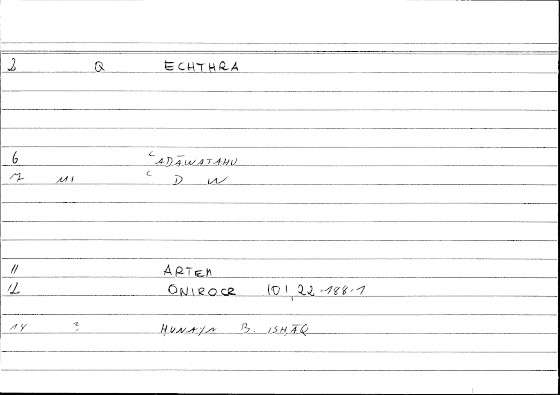 2 Q ECHTHRA
6 ʿADĀWATAHU
7 M1 ʿ D W
11 ARTEM
12 ONIROCR 101,22-188.1
14 2 ḤUNAYN B. ISḤĀQ